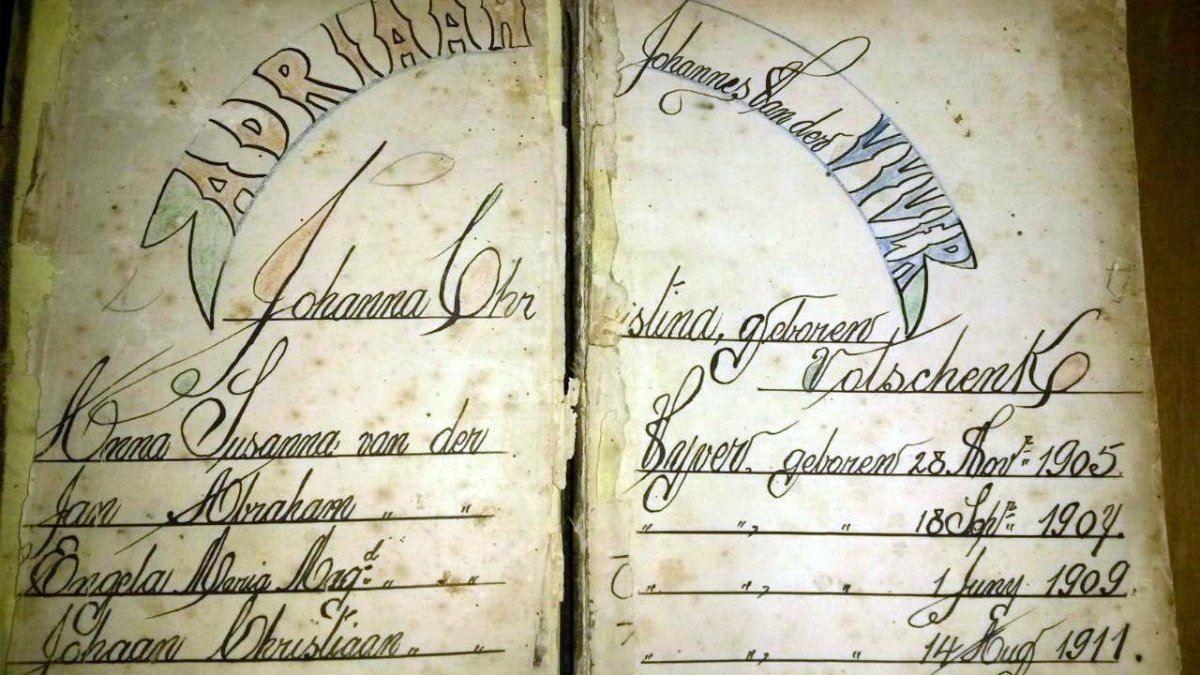 ADRIAAN Johannes Van der VYVER
Johanna Christina, geboren
Volschenk
Anna Susanna van der Vyver. geboren 28 Novr 1905.
Jan Abraham " " " ", " 18 Septr 1907.
Engela Maria Magd " " " ", " 1 Juny 1909.
Johaan Christiaan " " " ", " 14 Aug 1911.